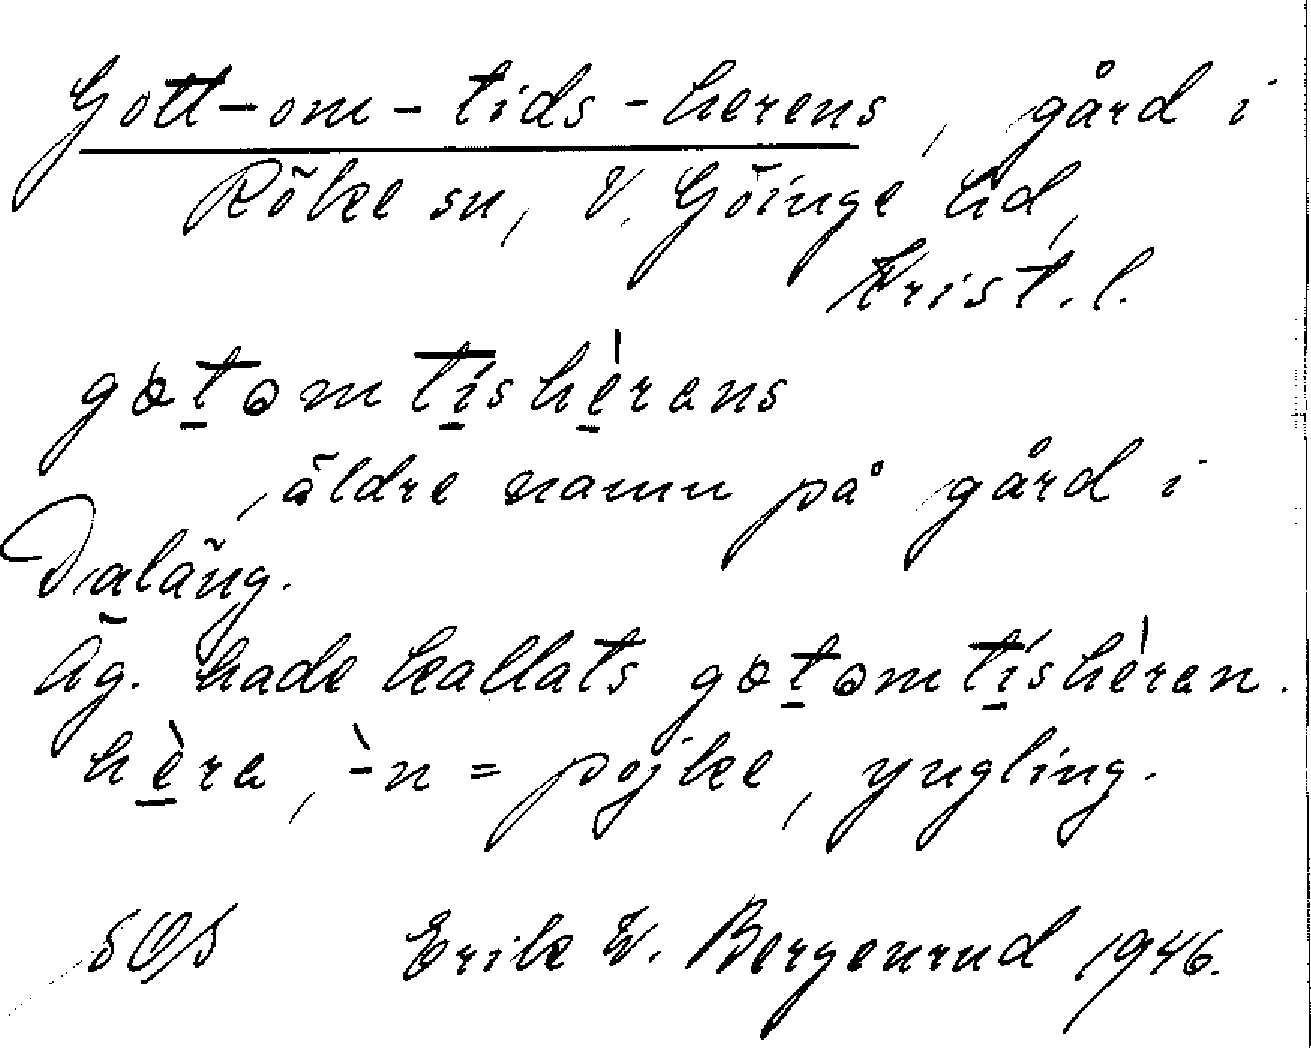 Gott-om-tids-herens, gård i
Röke sn, V. Göinge hd,
Krist. l.
gɔtəmtishèrens
äldre namn på gård i
Daläng.
Äg. hade kallats gɔtəmtishèren.
hèra, -̀n = pojke, yngling.
SOS Erik W. Bergenrud 1946.